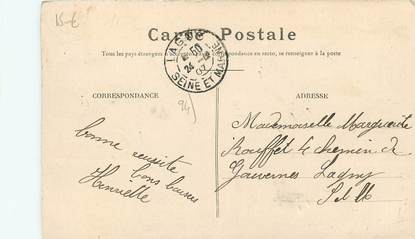 15 €
Carte Postale
Tous les pays étrangers correspondance au recto, se renseigner à la poste
LAGNY
50
24
07
SEINE ET MARNE
CORRESPONDANCE
ADRESSE
94
bonne reussite
bons baisers
Henriette
Mademoiselle Marguerite
Rouffet 4 chemin de
Gouvernes Lagny
S et M